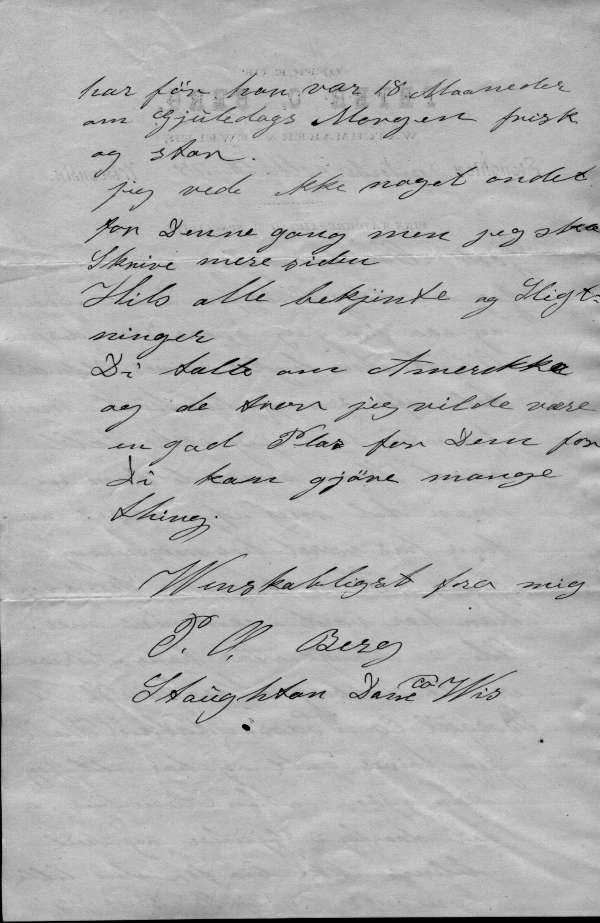 har för han var 18 Maaneder
om Gjuledags Morgen frisk
og stor.
jeg vede ikke noget andet
for Denne gang men jeg ska
Skrive mere siden
Hils alle bekjente og Sligt-
ninger
Di talte om Amerikka
og de tror jeg vilde være
en god Plas for Dem for
Di kan gjöre mange
thing.
Wenskabligst fra mig
P. O. Berg
Stoughton Dane co Wis